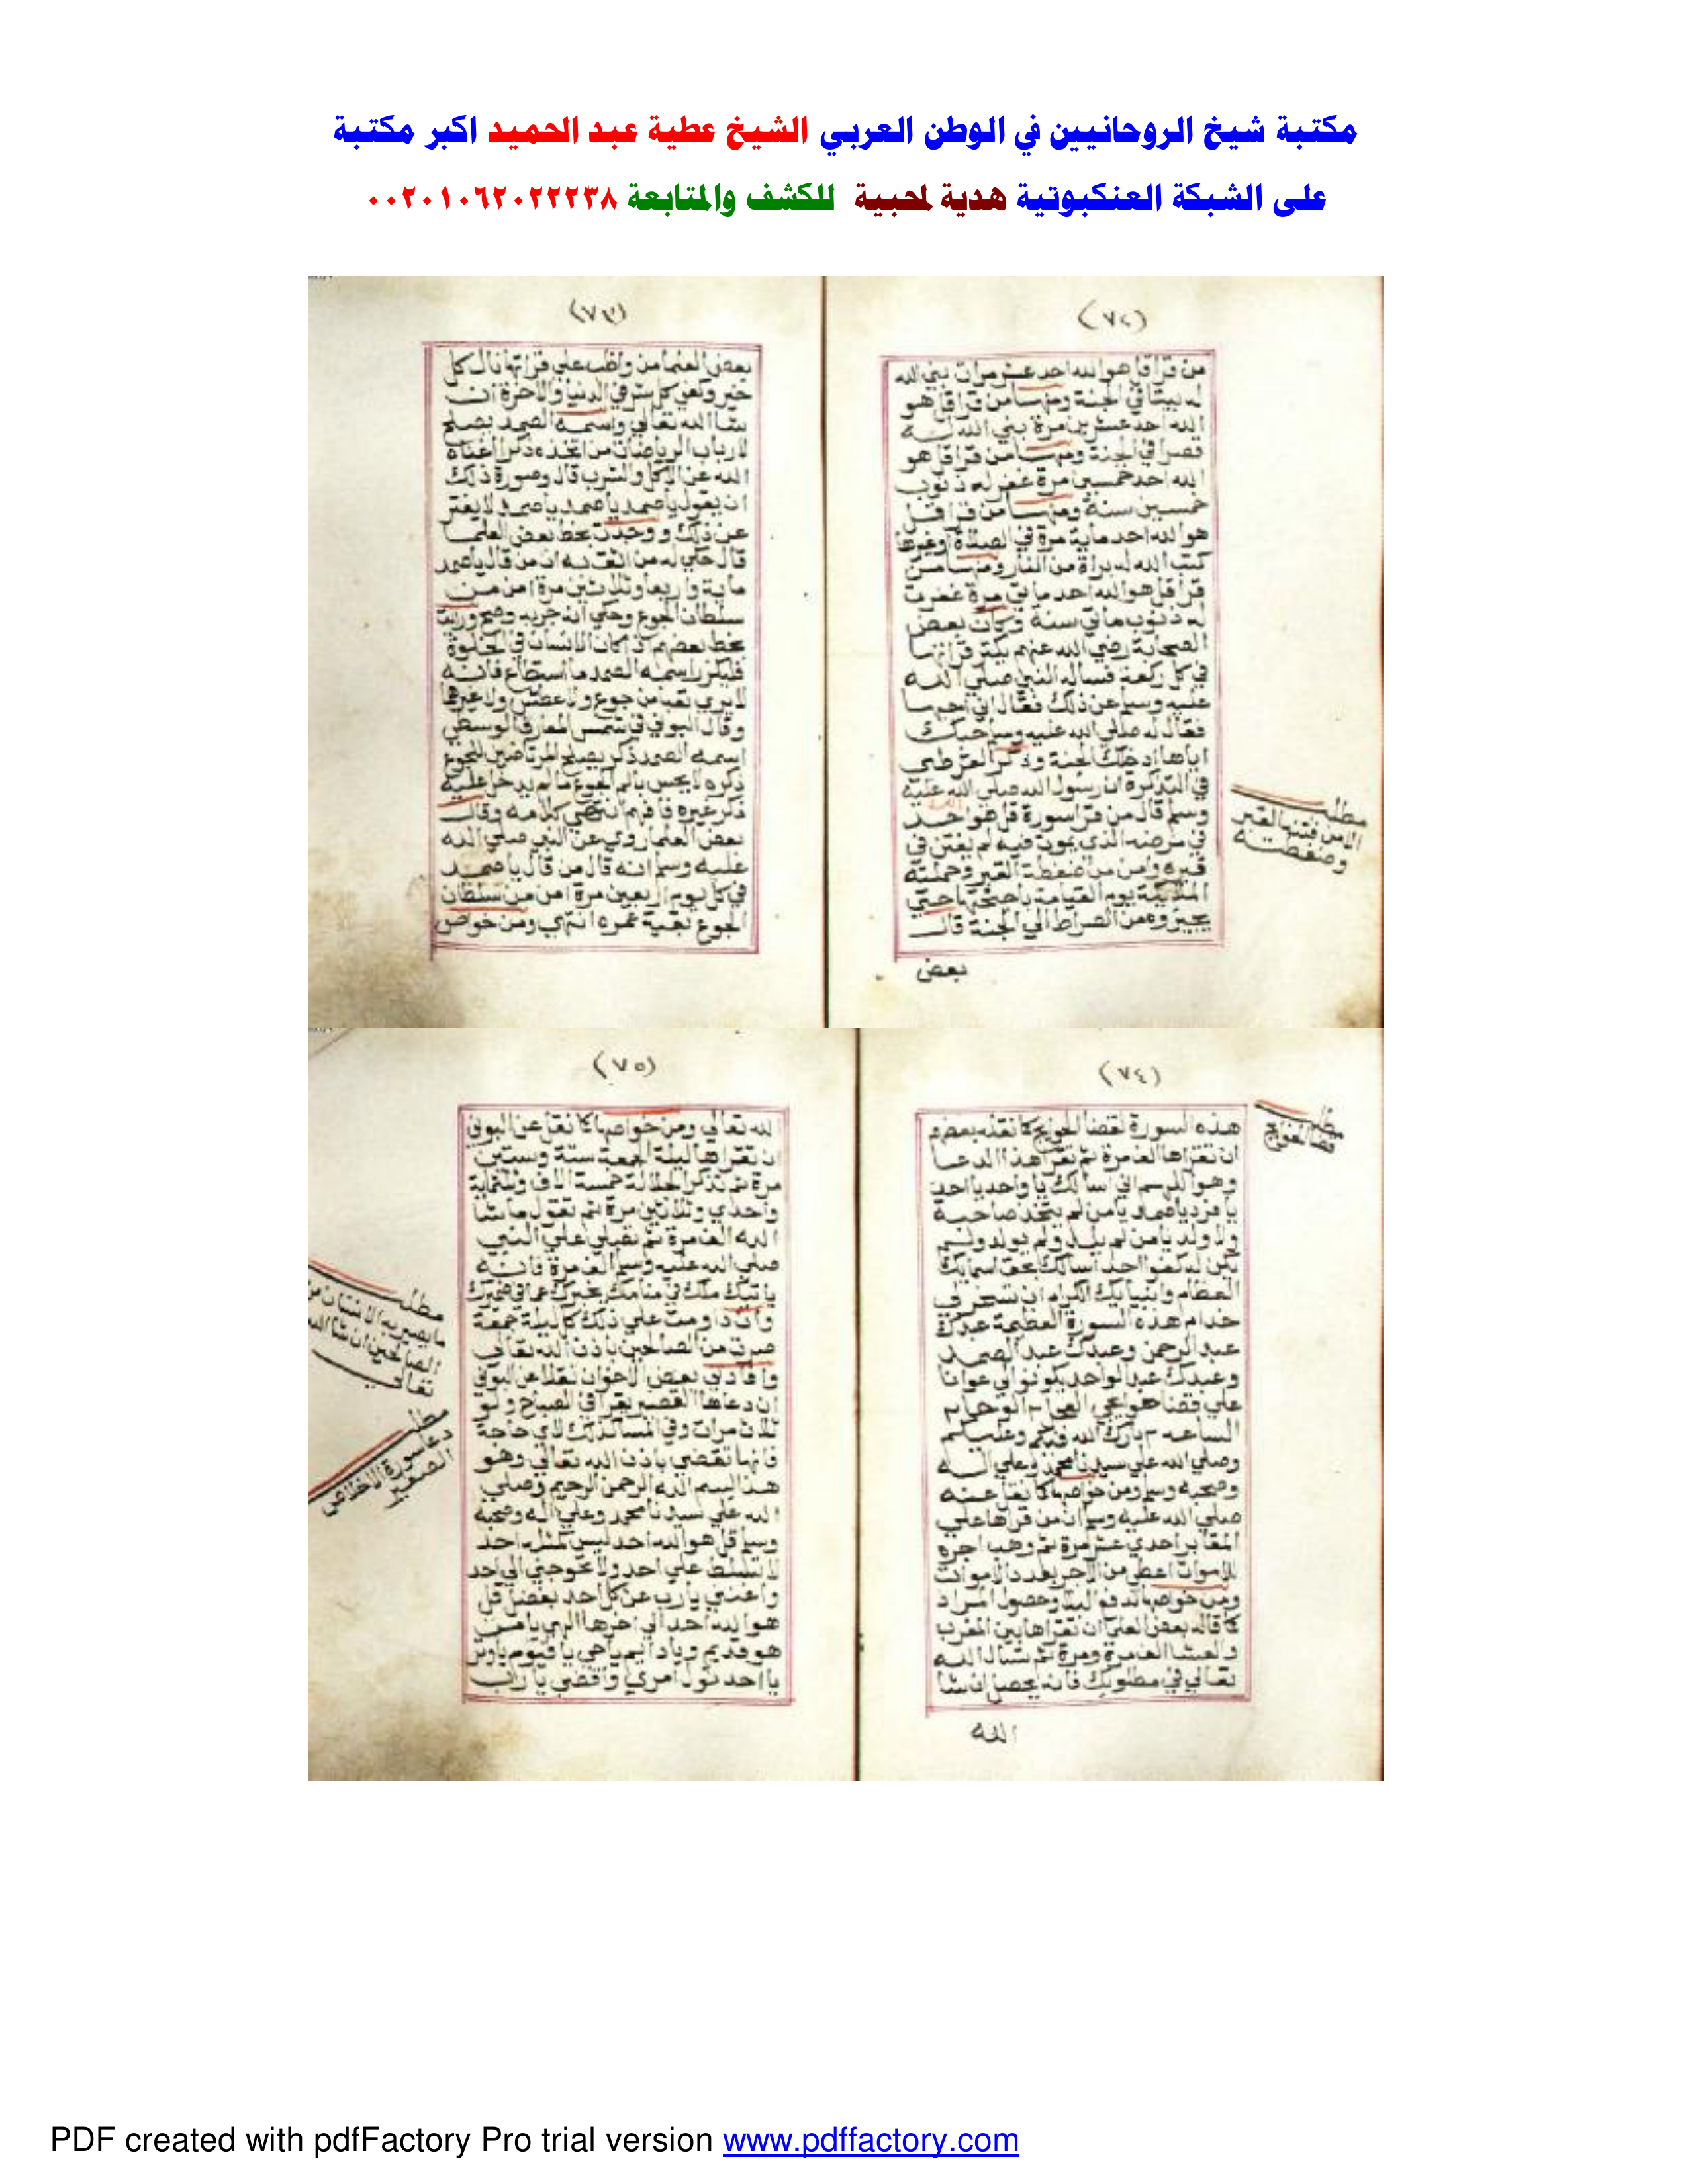 مكتبة شيخ الروحانيين في الوطن العربي الشيخ عطية عبد الحميد اكبر مكتبة
على الشبكة العنكبوتية هدية لمحبية للكشف والمتابعة ٠٠٢٠١٠٦٢٠٢٢٢٣٨
(٧٢)
من قرا قل هو الله احد عشر مرات بني الله
له بيتا في الجنة ومنها من قرا قل هو
الله احد عشرين مرة بني الله له
قصرا في الجنة ومنها من قرا قل هو
الله احد خمسين مرة غفر له ذنوب
خمسين سنة ومنها من قرا قل
هو الله احد ماية مرة في الصلاة او غيرها
كتب الله له براة من النار ومنها من
قرا قل هو الله احد مايتي مرة غفرت
له ذنوب مايتي سنة وكان بعض
الصحابة رضي الله عنهم يكثر قراتها
في كل ركعة فساله النبي صلي الله
عليه وسلم عن ذلك فقال اني احبها
فقال له صلي الله عليه وسلم حبك
اياها ادخلك الجنة وذكر القرطبي
في التذكرة ان رسول الله صلي الله عليه
وسلم قال من قرا سورة قل هو الله احد
في مرضه الذي يموت فيه لم يفتن في
قبره وامن من ضغطة القبر وحملته
الملايكة يوم القيامة باجنحتها حتي
يجيزوه من الصراط الي الجنة قال
بعض
مطلب
الامن فتنة القبر
وضغطته
(٧٣)
بعض العلما من واظب علي قراتها نال كل
خير وكفي كل شر في الدنيا والاخرة ان
شا الله تعالي واسمه الصمد يصلح
لارباب الرياضات من اتخذه ذكرا اغناه
الله عن الاكل والشرب قال وصورة ذلك
ان يقول يا صمد يا صمد يا صمد لا يفتر
عن ذلك ووجدت بخط بعض العلما
قال حكي له من اثق به ان من قال يا صمد
ماية واربعا وثلاثين مرة امن من
سلطان الجوع وحكي انه جربه وصح ورايت
بخط بعضهم اذا كان الانسان في الخلوة
فليكثر اسمه الصمد ما استطاع فانه
لا يري تعبا من جوع ولا عطش ولا غيرهما
وقال البوني في شمس المعارف الوسطي
اسمه الصمد ذكر يصلح للمرتاضين بالجوع
ذكره لا يحس بالم الجوع ما لم يدخل عليه
ذكر غيره فافهم انتهي كلامه وقال
بعض العلما روي عن النبي صلي الله
عليه وسلم انه قال من قال يا صمد
في كل يوم اربعين مرة امن من سلطان
الجوع بقية عمره انتهي ومن خواص
(٧٤)
هذه السورة لقضا الحوايج كما نقله بعضهم
ان تقراها الف مرة ثم تقرا هذا الدعا
وهو اللهم اني اسالك يا واحد يا احد
يا فرد يا صمد يا من لم يتخذ صاحبة
ولا ولد يا من لم يلد ولم يولد ولم
يكن له كفوا احد اسالك بحق اسمايك
العظام وانبيايك الكرام ان تسخر لي
خدام هذه السورة العظيمة عبدك
عبد الرحمن وعبدك عبد الصمد
وعبدك عبد الواحد يكونوا لي عوانا
علي قضا حوايجي العجل الوحا
الساعة بارك الله فيكم وعليكم
وصلي الله علي سيدنا محمد وعلي اله
وصحبه وسلم ومن خواصها كما نقل عنه
صلي الله عليه وسلم ان من قراها علي
المقابر احدي عشر مرة ثم وهب اجره
للاموات اعطي من الاجر بعدد الاموات
ومن خواصها لدفع البلا وحصول المراد
كما قاله بعض العلما ان تقراها بين المغرب
والعشا الف مرة ومرة ثم تسال الله
تعالي في مطلوبك فانه يحصل ان شا
الله
مطلب
قضا الحوايج
(٧٥)
الله تعالي ومن خواصها كما نقل عن البوني
ان تقراها ليلة الجمعة ستة وستين
مرة ثم تذكر الجلالة خمسة الاف وثلثماية
واحدي وثلاثين مرة ثم تقول ما شا
الله الف مرة ثم تصلي علي النبي
صلي الله عليه وسلم الف مرة فانه
ياتيك ملك في منامك يخبرك عما في ضميرك
وان داومت علي ذلك كل ليلة جمعة
صرت من الصالحين باذن الله تعالي
وافادني بعض الاخوان نقلا عن البوني
ان دعاها القصير يقرا في الصباح ولو
ثلاث مرات وفي المسا كذلك لاي حاجة
فانها تقضي باذن الله تعالي وهو
هذا بسم الله الرحمن الرحيم وصلي
الله علي سيدنا محمد وعلي اله وصحبه
وسلم قل هو الله احد ليس كمثله احد
لا تسلط علي احد ولا تحوجني الي احد
واغنني يا رب عن كل احد بفضل قل
هو الله احد الي اخرها الهي يا من
هو قديم ويا دايم يا حي يا قيوم يا اول
يا احد تول امري واقضي يا رب
مطلب
ما يصير به الانسان من
الصالحين ان شا الله
تعالي
مطلب
دعا سورة الاخلاص
الصغير
PDF created with pdfFactory Pro trial version www.pdffactory.com